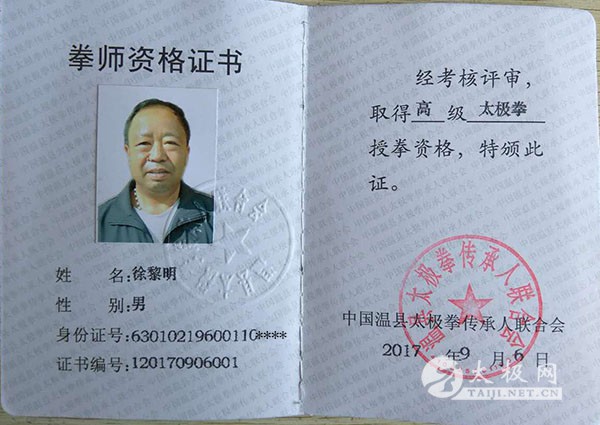 拳师资格证书
姓 名:徐黎明
性 别:男
身份证号:63010219600110****
证书编号:120170906001
经考核评审,
取得高级太极拳
授拳资格,特颁此
证。
温县太极拳传承人联合会
中国温县太极拳传承人联合会
2017年9月6日
太极网
TAIJI.NET.CN